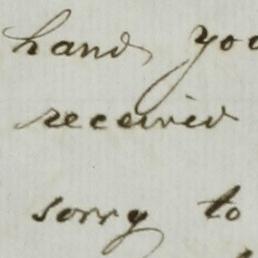 hand you
received
sorry to